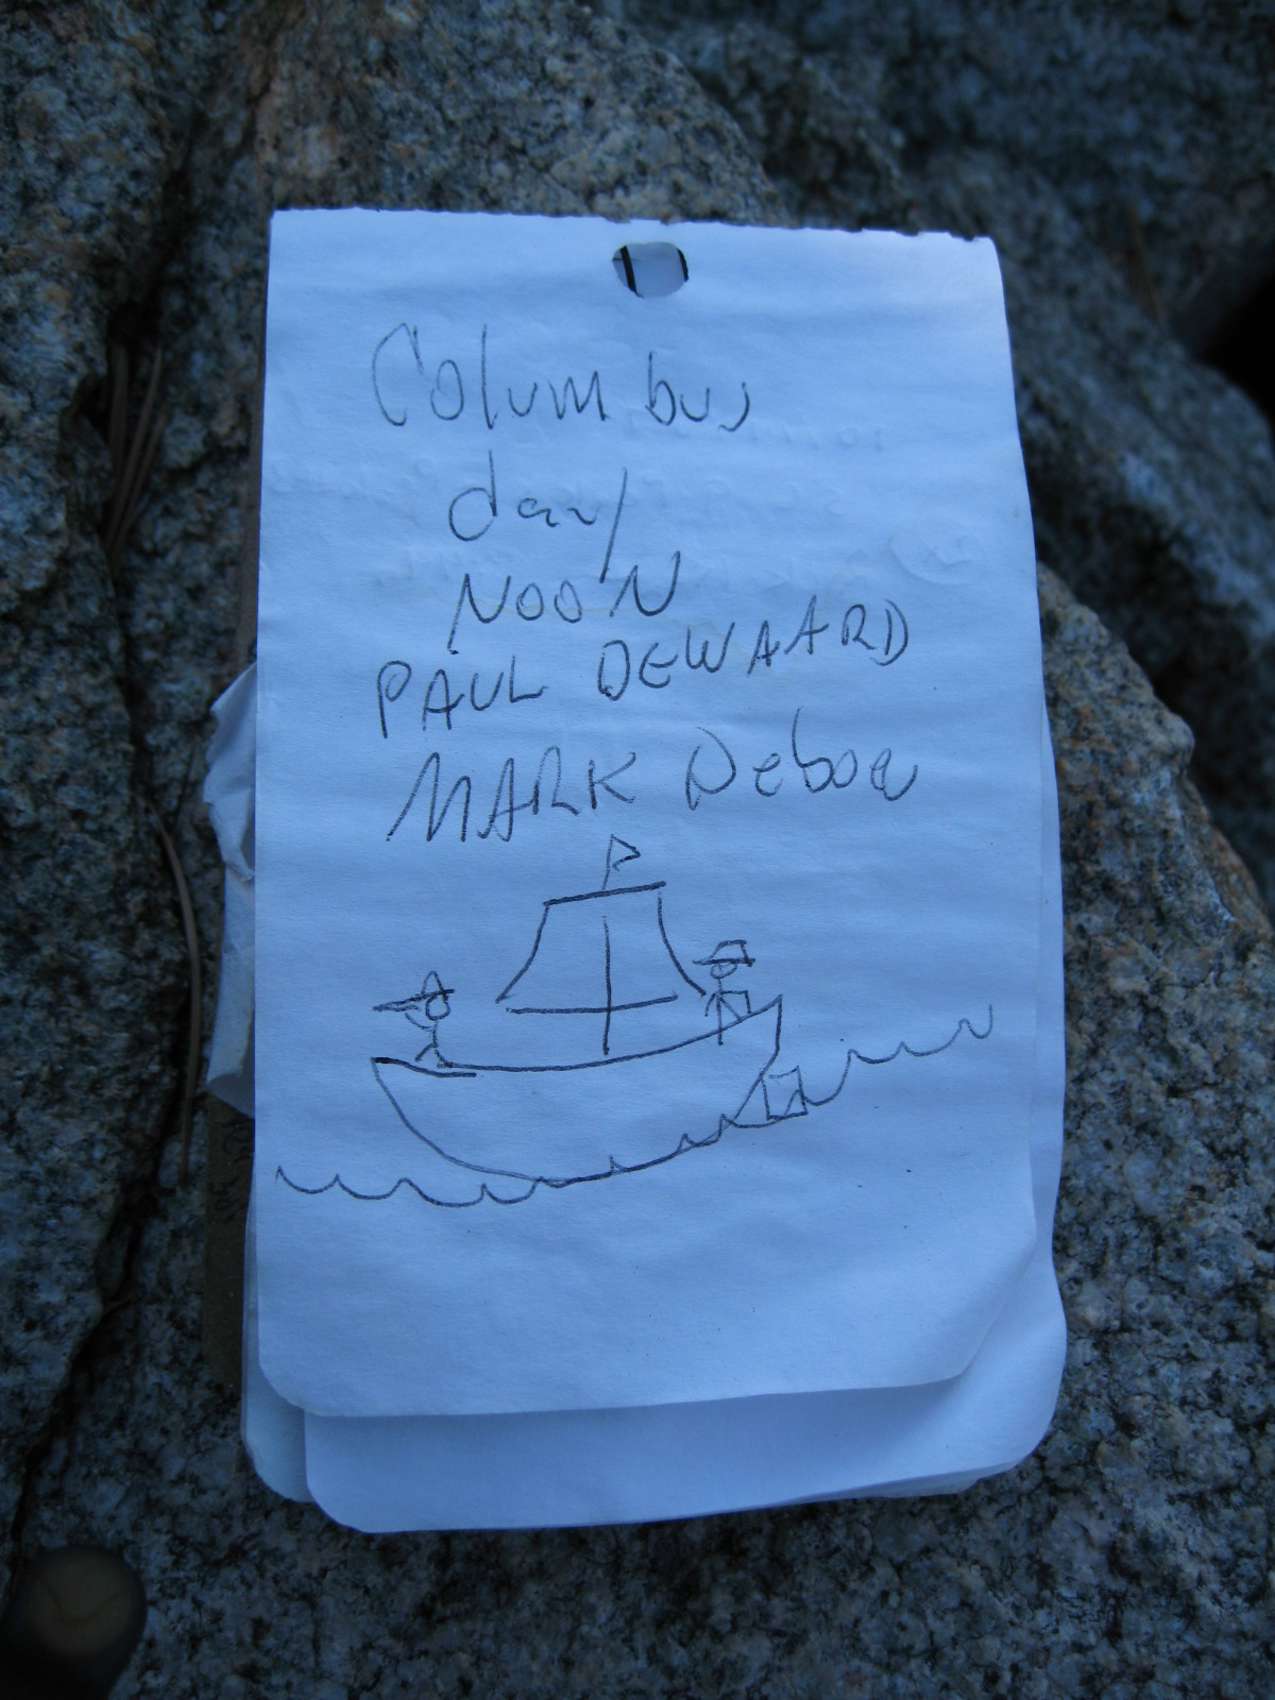 Columbus
day
NOON
PAUL DEWAARD
MARK Deboer